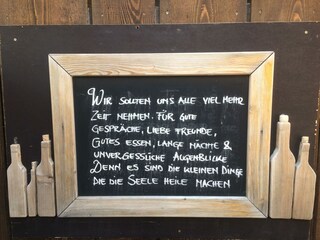 WIR SOLLTEN UNS ALLE VIEL MEHR
ZEIT NEHMEN. FÜR GUTE
GESPRÄCHE, LIEBE FREUNDE,
GUTES ESSEN, LANGE NÄCHTE &
UNVERGESSLICHE AUGENBLICKE
DENN ES SIND DIE KLEINEN DINGE
DIE DIE SEELE HEILE MACHEN